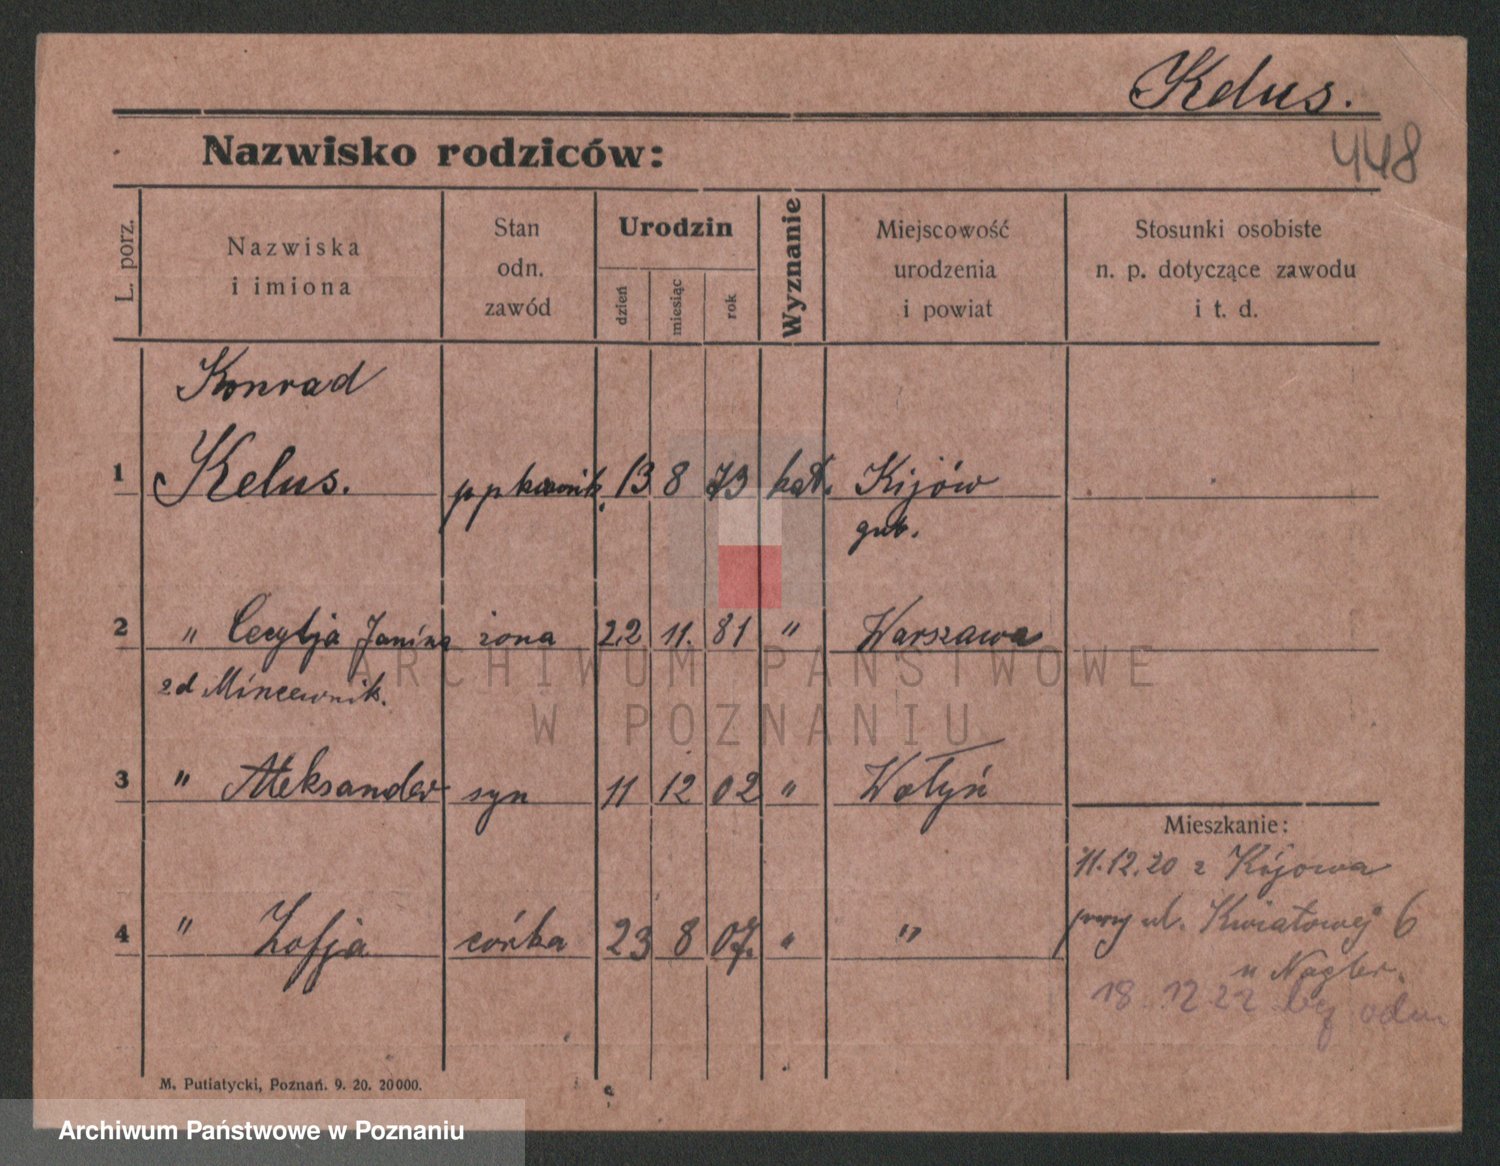 Kelus.
448
Nazwisko rodziców:
L. porz.
Nazwiska
i imiona
Stan
odn.
zawód
Urodzin
dzień
miesiąc
rok
Wyznanie
Miejscowość
urodzenia
i powiat
Stosunki osobiste
n. p. dotyczące zawodu
i t. d.
Konrad
1 Kelus. 13 8 73 kat. Kijów
gub.
2 " Cecylja Janina żona 22 11. 81 " Warszawa
zd
ARCHIWUM PAŃSTWOWE
W POZNANIU
3 " Aleksander syn 11 12 02 " Wołyń
Mieszkanie:
11.12.20 z Kijowa
przy ul. Kwiatowej 6
4 " Zofja córka 23 8 07. " "
u Nagler.
18.12 22 bez odm
M. Putiatycki, Poznań. 9. 20. 20000.
Archiwum Państwowe w Poznaniu